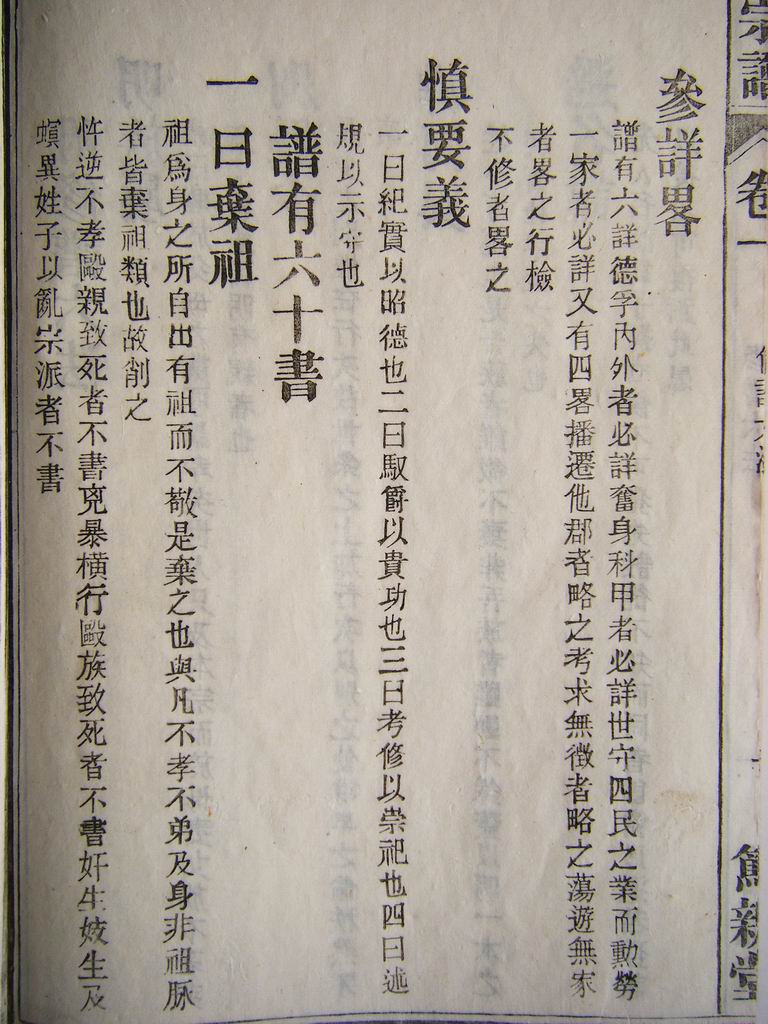 宗譜
卷一
篤親堂
參詳畧
譜有六詳德孚內外者必詳奮身科甲者必詳世守四民之業而勲勞
一家者必詳又有四畧播遷他郡者略之考求無徵者略之蕩遊無家
者畧之行檢
不修者畧之
慎要義
一曰紀實以昭德也二曰馭爵以貴功也三曰考修以崇祀也四曰述
規以示守也
譜有六十書
一曰棄祖
祖爲身之所自出有祖而不敬是棄之也與凡不孝不弟及身非祖脉
者皆棄祖類也故削之
忤逆不孝毆親致死者不書兇暴橫行毆族致死者不書奸生妓生及
螟異姓子以亂宗派者不書